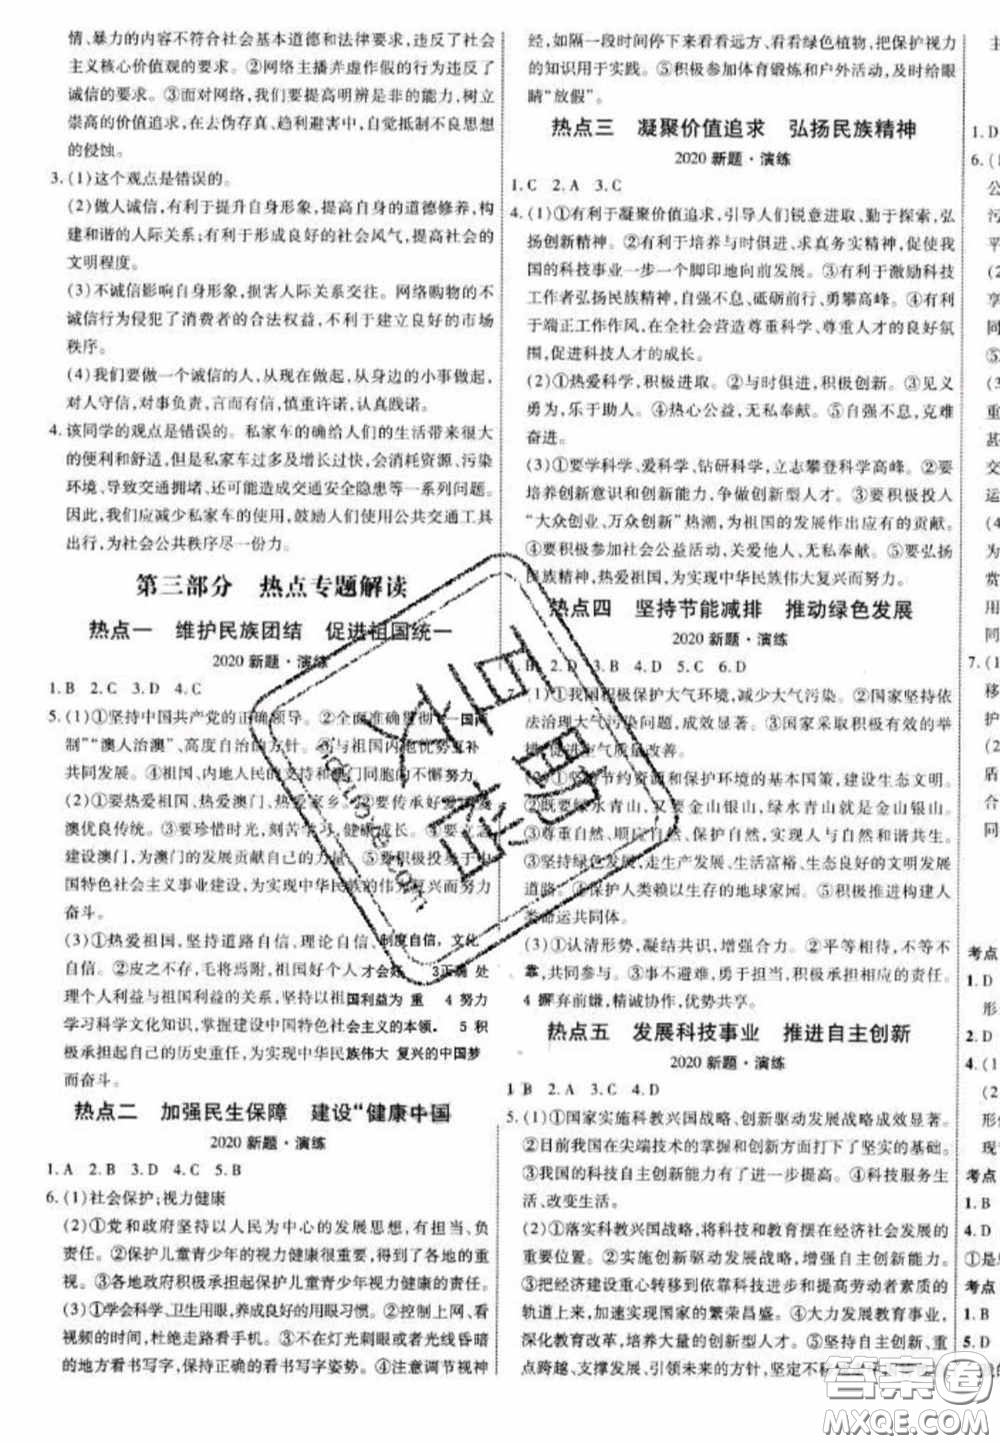 情、暴力的内容不符合社会基本道德和法律要求,违反了社会
主义核心价值观的要求。②网络主播弄虚作假的行为违反了
诚信的要求。③面对网络,我们要提高明辨是非的能力,树立
崇高的价值追求,在去伪存真、趋利避害中,自觉抵制不良思想
的侵蚀。
3.(1)这个观点是错误的。
(2)做人诚信,有利于提升自身形象,提高自身的道德修养,构
建和谐的人际关系;有利于形成良好的社会风气,提高社会的
文明程度。
(3)不诚信影响自身形象,损害人际关系交往。网络购物的不
诚信行为侵犯了消费者的合法权益,不利于建立良好的市场
秩序。
(4)我们要做一个诚信的人,从现在做起,从身边的小事做起,
对人守信,对事负责,言而有信,慎重许诺,认真践诺。
4.该同学的观点是错误的。私家车的确给人们的生活带来很大
的便利和舒适,但是私家车过多及增长过快,会消耗资源、污染
环境、导致交通拥堵、还可能造成交通安全隐患等一系列问题。
因此,我们应减少私家车的使用,鼓励人们使用公共交通工具
出行,为社会公共秩序尽一份力。
第三部分 热点专题解读
热点一 维护民族团结 促进祖国统一
2020新题·演练
1.B 2.C 3.D 4.C
5.(1)①坚持中国共产党的正确领导。②全面准确贯彻"一国两
制""澳人治澳"、高度自治的方针。③与祖国内地优势互补
共同发展。④祖国、内地人民的支持和澳门同胞的不懈努力
(2)①要热爱祖国、热爱澳门、热爱家乡。②要传承好爱国爱
澳优良传统。③要珍惜时光、刻苦学习、健康成长。④要立志
建设澳门,为澳门的发展贡献自己的力量。⑤要积极投身中
国特色社会主义事业建设,为实现中华民族的伟大复兴而努力
奋斗。
(3)①热爱祖国,坚持道路自信、理论自信、制度自信,文化
自信。②皮之不存,毛将焉附,祖国好个人才会好 3正确 处
理个人利益与祖国利益的关系,坚持以祖国利益为 重 4 努力
学习科学文化知识,掌握建设中国特色社会主义的本领. 5 积
极承担起自己的历史重任,为实现中华民族伟大 复兴的中国梦
而奋斗。
热点二 加强民生保障 建设"健康中国
2020新题·演练
1.A 2.B 3.D 4.C 5.B
6.(1)社会保护;视力健康
(2)①党和政府坚持以人民为中心的发展思想,有担当、负
责任。②保护儿童青少年的视力健康很重要,得到了各地的重视。
③各地政府积极承担起保护儿童青少年视力健康的责任。
(3)①学会科学、卫生用眼,养成良好的用眼习惯。②控制上网、看
视频的时间,杜绝走路看手机。③不在灯光刺眼或者光线昏暗
的地方看书写字,保持正确的看书写字姿势。④注意调节视神
经,如隔一段时间停下来看看远方、看看绿色植物,把保护视力
的知识用于实践。⑤积极参加体育锻炼和户外活动,及时给眼
睛"放假"。
热点三 凝聚价值追求 弘扬民族精神
2020新题·演练
1.C 2.A 3.C
4.(1)①有利于凝聚价值追求,引导人们锐意进取、勤于探索,弘
扬创新精神。②有利于培养与时俱进、求真务实精神,促使我
国的科技事业一步一个脚印地向前发展。③有利于激励科技
工作者弘扬民族精神,自强不息、砥砺前行、勇攀高峰。④有利
于端正工作作风,在全社会营造尊重科学、尊重人才的良好氛
围,促进科技人才的成长。
(2)①热爱科学,积极进取。②与时俱进,积极创新。③见义
勇为,乐于助人。④热心公益,无私奉献。⑤自强不息,克难
奋进。
(3)①要学科学、爱科学、钻研科学,立志攀登科学高峰。②要
培养创新意识和创新能力,争做创新型人才。③要积极投入
"大众创业、万众创新"热潮,为祖国的发展作出应有的贡献。
④要积极参加社会公益活动、关爱他人、无私奉献。⑤要弘扬
民族精神,热爱祖国,为实现中华民族伟大复兴而努力。
热点四 坚持节能减排 推动绿色发展
2020新题·演练
1.B 2.D 3.D 4.D 5.C 6.D
7.(1)①我国积极保护大气环境,减少大气污染。②国家坚持依
法治理大气污染问题,成效显著。③国家采取积极有效的举
措,促进空气质量改善。
(2)①坚持节约资源和保护环境的基本国策,建设生态文明。
②既要绿水青山,又要金山银山,绿水青山就是金山银山。
③尊重自然、顺应自然、保护自然,实现人与自然和谐共生。
④坚持绿色发展,走生产发展、生活富裕、生态良好的文明发展
道路。④保护人类赖以生存的地球家园。⑤积极推进构建人
类命运共同体。
(3)①认清形势,凝结共识,增强合力。②平等相待,不等不
靠,共同参与。③迎难而上,勇于担当,积极承担应尽的责任。
4 摒弃前嫌,精诚协作,优势共享。
热点五 发展科技事业 推进自主创新
2020新题·演练
1 B 2.A 3.C 4.D
5.(1)①国家实施科教兴国战略、创新驱动发展战略成效显著。
②目前我国在尖端技术的掌握和创新方面打下了坚实的基础。
③我国的科技自主创新能力有了进一步提高。④科技服务生
活、改变生活。
(2)①落实科教兴国战略,将科技和教育摆在经济社会发展的
重要位置。②实施创新驱动发展战略,增强自主创新能力。
③把经济建设重心转移到依靠科技进步和提高劳动者素质的
轨道上来,加速实现国家的繁荣昌盛。④大力发展教育事业,
深化教育改革,培养大量的创新型人才。⑤坚持自主创新、重
点跨越、支撑发展、引领未来的方针,坚定不移
1.D
6.(1
公
污
平
(2
享
同
⑤
7.(1
考点
1.D
2.D
4.(1
考点
1.B
4.D
考点
1.B
5.D
答案卷
MXQE.COM